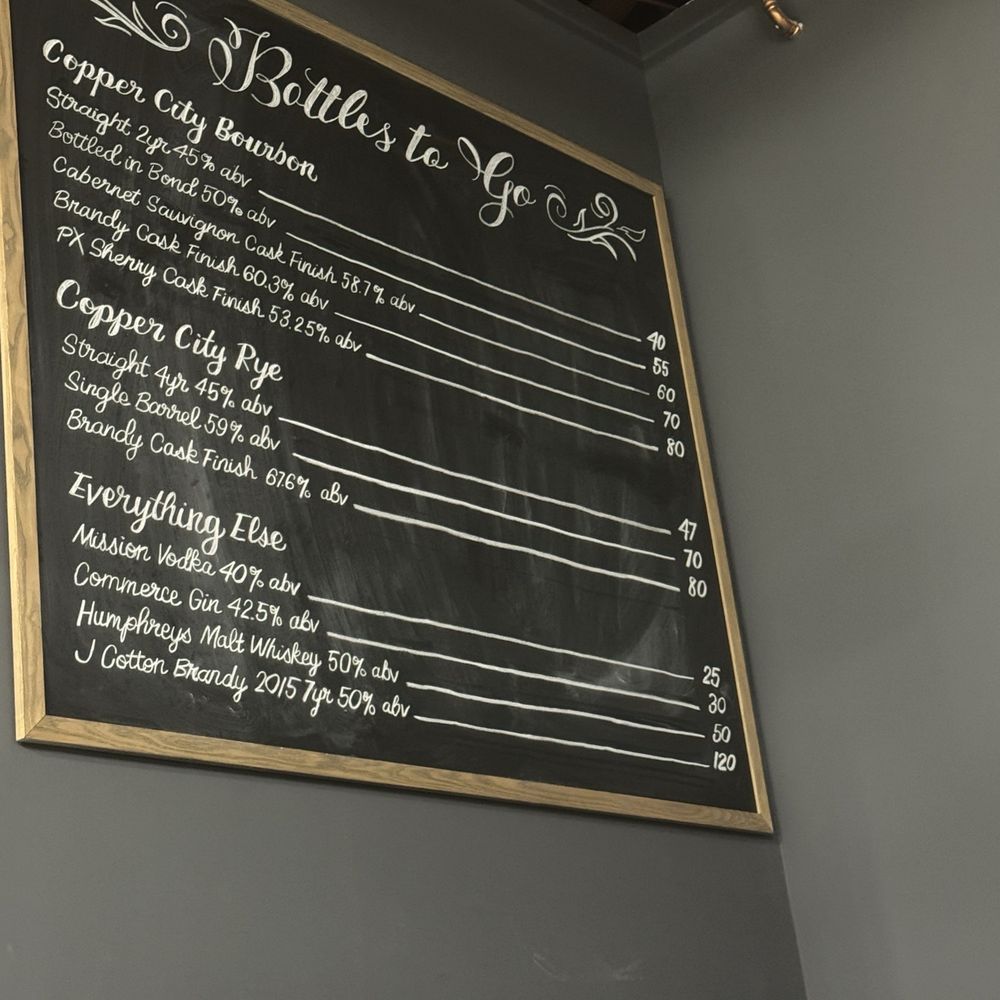 Bottles to Go
Copper City Bourbon
Straight 2yr 45% abv 40
Bottled in Bond 50% abv 55
Cabernet Sauvignon Cask Finish 58.7% abv 60
Brandy Cask Finish 60.3% abv 70
PX Sherry Cask Finish 53.25% abv 80
Copper City Rye
Straight 4yr 45% abv 47
Single Barrel 59% abv 70
Brandy Cask Finish 67.6% abv 80
Everything Else
Mission Vodka 40% abv 25
Commerce Gin 42.5% abv 30
Humphreys Malt Whiskey 50% abv 50
J Cotton Brandy 2015 7yr 50% abv 120